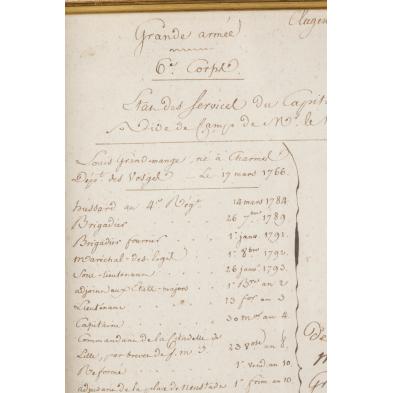 Grande armée
6e. Corps
Etat des Services du Capit
Aide de Camp de Mr. le
Louis Grandmange, né à Charmes
Dépt. des Vosges - Le 17 mars 1766.
hussard au 4e. Régt. 14 mars 1784.
Brigadier 26 7bre 1789
Brigadier fourrier 1r. janv. 1791.
Maréchal-des-logis 1r. 8bre 1792.
Sous-lieutenant 26 janv. 1793.
adjoint aux Etats-majors 1r. an 2.
Lieutenant 13 flor an 3
Capitaine 30 mor. an 4.
Commandant de la Citadelle de
Lille, par brevet de p. m. 23 an 8.
Réformé 1r. vend an 10
adjudant de la place de 1r. frim an 10